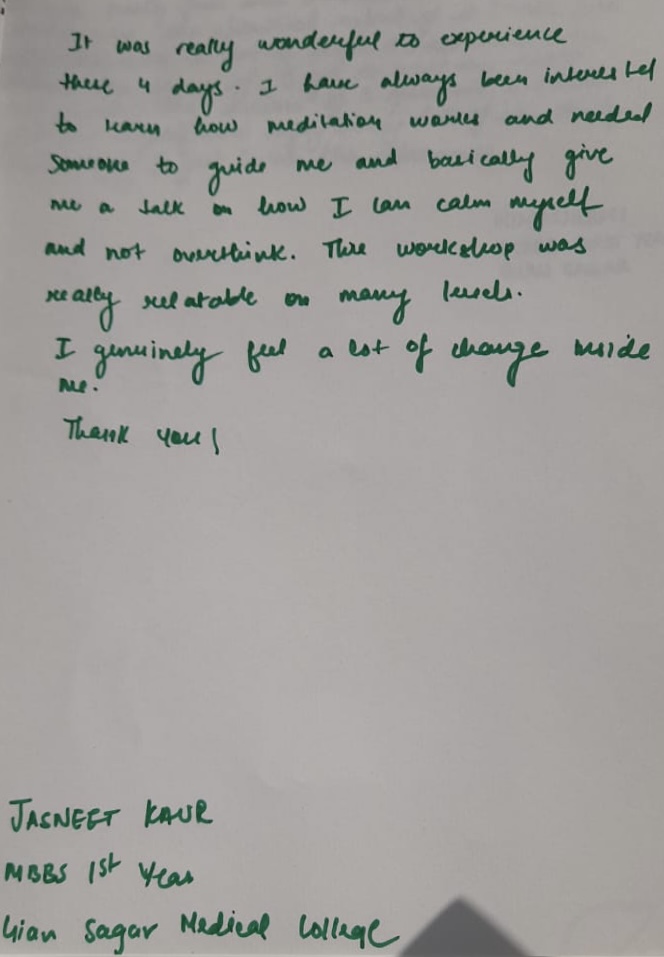 It was really wonderful to experience
these 4 days. I have always been interested
to learn how meditation works and needed
someone to guide me and basically give
me a talk on how I can calm myself
and not overthink. This workshop was
really relatable on many levels.
I genuinely feel a lot of change inside
me.
Thank you!
JASNEET KAUR
MBBS 1st Year
Gian Sagar Medical College